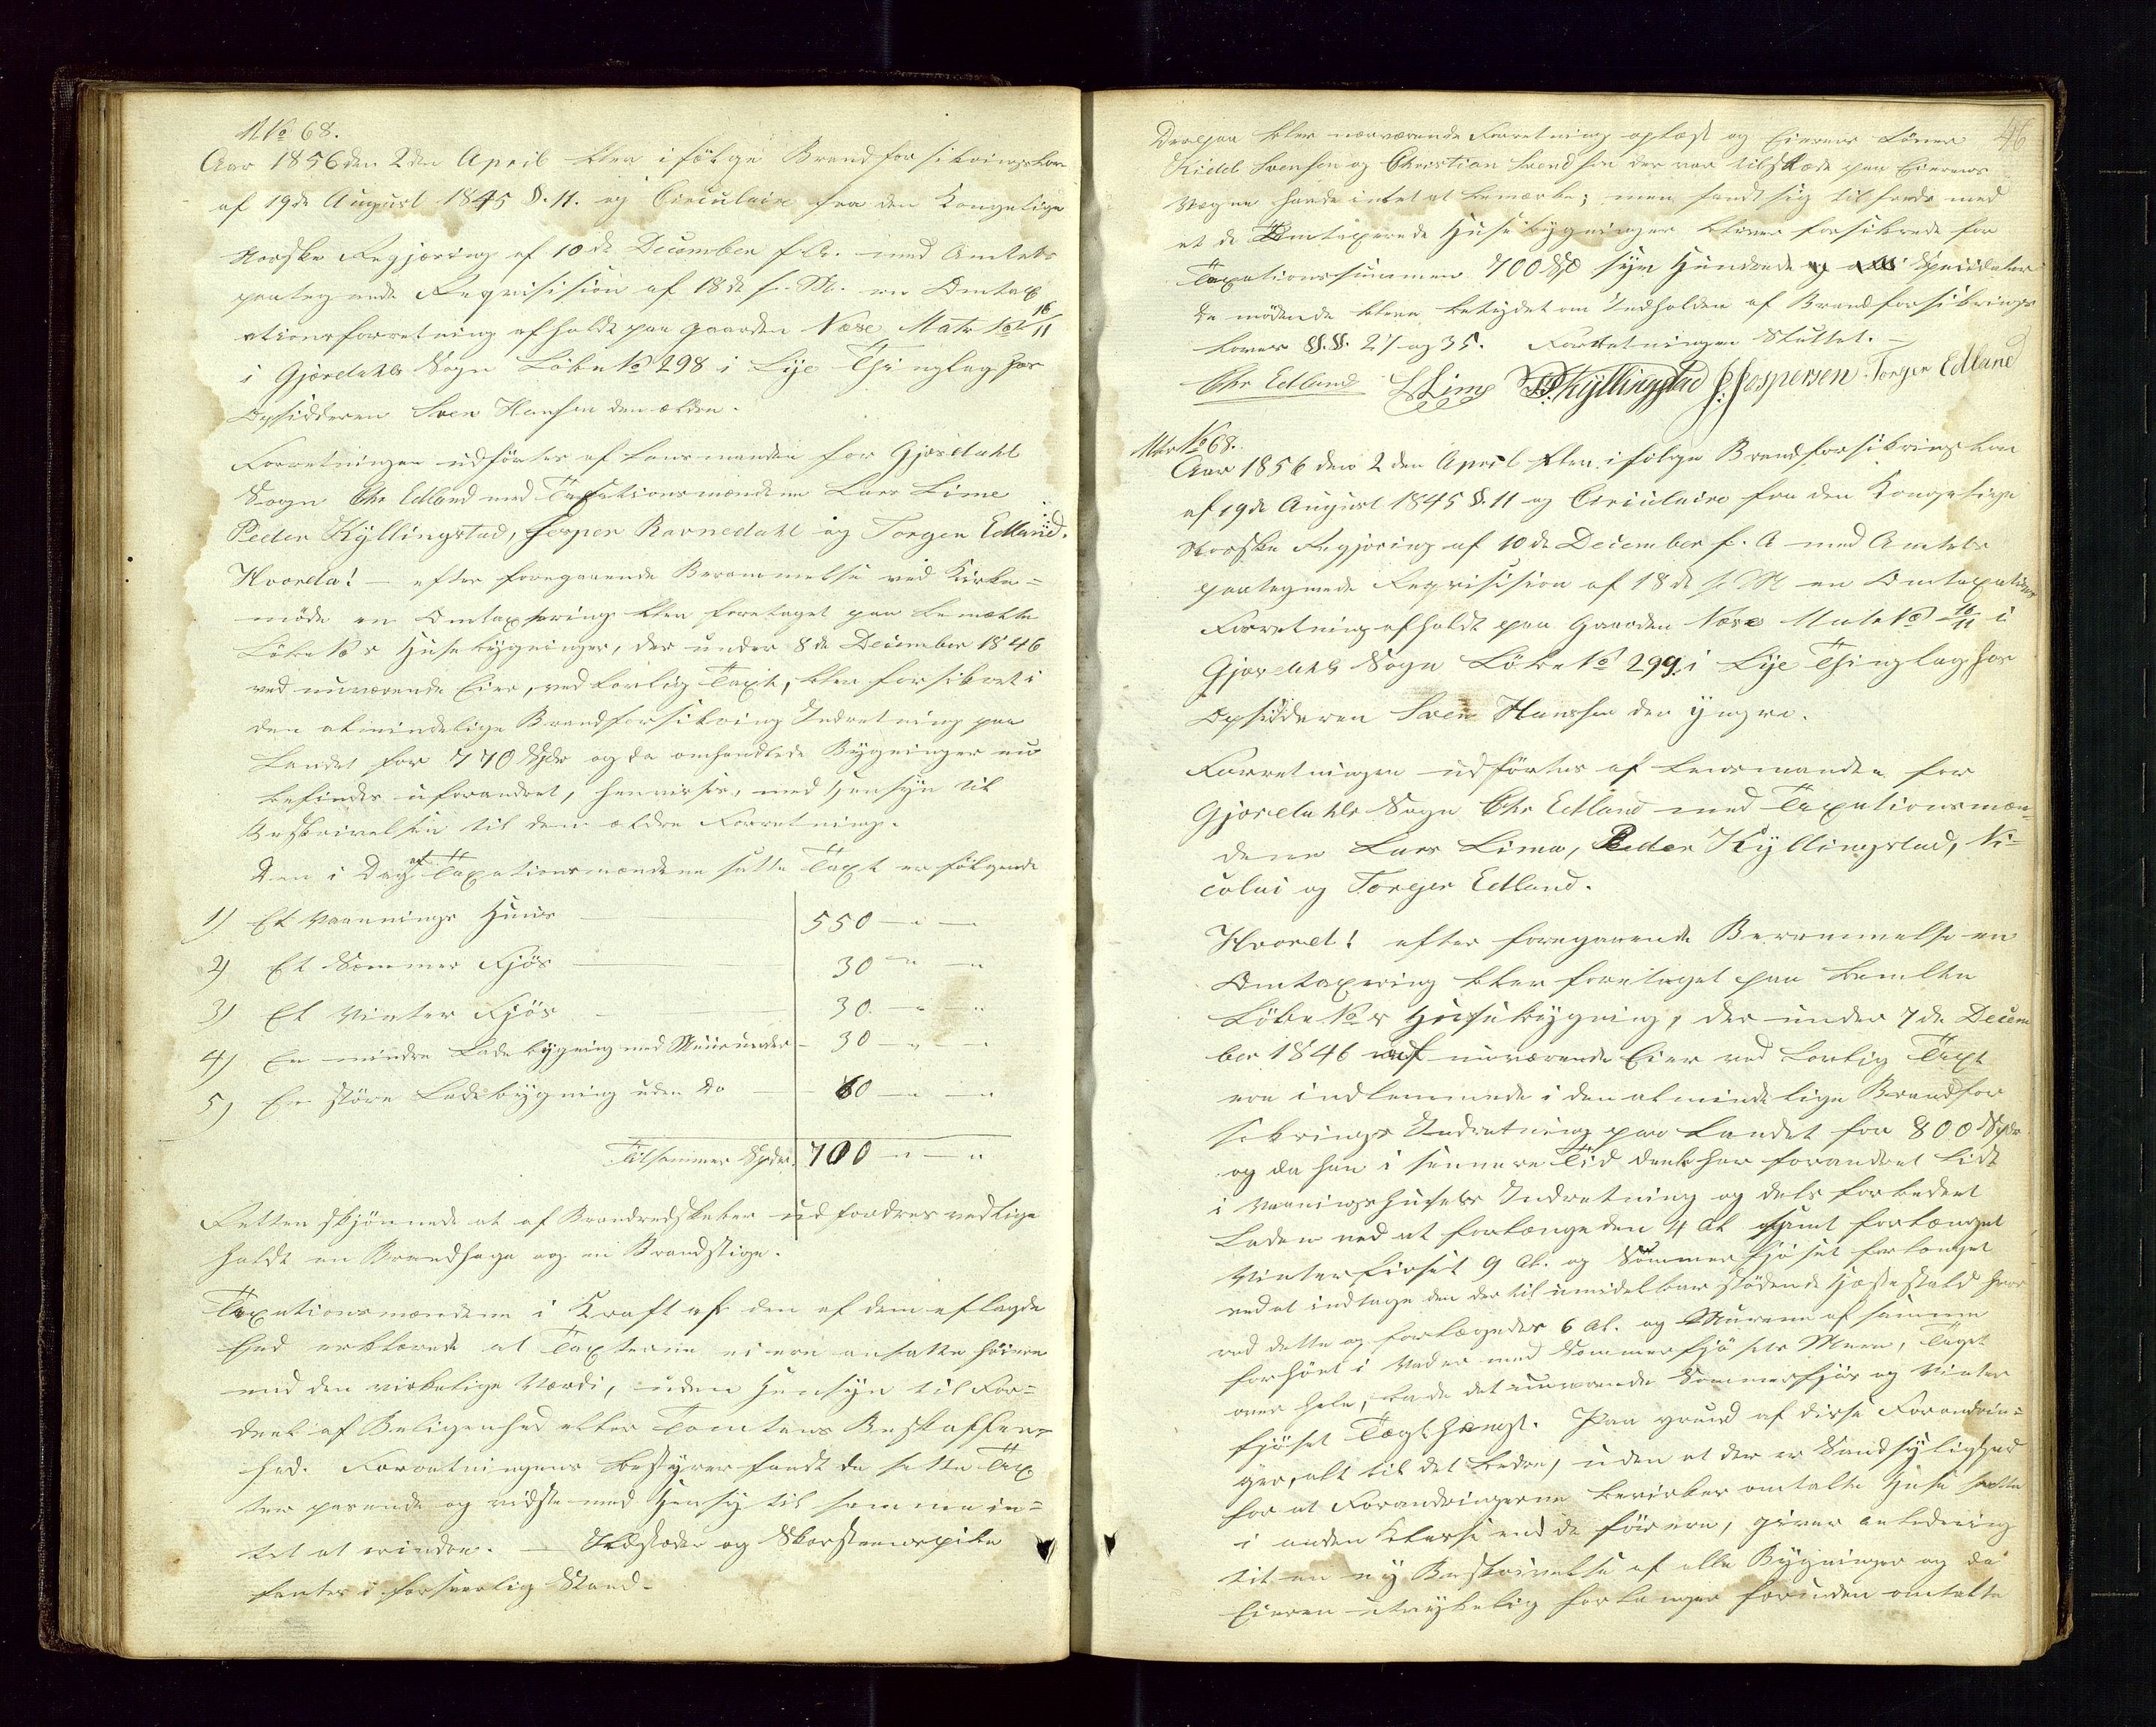 M No 68.
Aar 1856 den 2den April blev ifölge Brandforsikringslov
af 19de August 1845 §. 11. og Circulaire fra den Kongelige
Norske Regjæring af 10de December f. A. med Amtets
paategnede Reqvisision af 18de s. M. en Omtax
ationsforretning afholdt paa Gaarden Næse Matr No 16/11
i Gjæsdahls Sogn Löbe No 298 i Lye Thinglag hos
Opsidderen Sven Hansen den ældre.
Forretningen udförtes af Lensmanden for Gjæsdahl
Sogn Chr Edland med Taxationsmændene Lars Lime
Peder Kyllingstad, Jesper Ravnedahl og Torger Edland.
Hvorda! – efter foregaaende Berammelse ved Kirke=
møde en Omtaxering blev foretaget paa bemeldte
Löbe No s Husebygninger, der under 8de December 1846
ved nuværende Eier, ved lovlig Taxt, blev forsikret i
den almindelige Brandforsikring Indretning paa
Landet for 770 Spdr og da omhandlede Bygninger nu
befindes uforandret, henvises, med Hensyn til
Beskrivelsen til den ældre Forretning.
Den i Dag af Taxationsmændene satte Taxt er fölgende
1) Et Vaanings Huus — 550 — " —
2) Et Sommer Fjös — 30 " — "
3) Et Vinter Fjös — 30. — " — "
4) En mindre Ladebygning med Muur under — 30 — " — "
5) En större Ladebygning uden do — 60 — " — "
Tilsammen Spdr. 700 — " — "
Retten skjönnede at af Brandredskaber udfordres vedlige
holdt en Brandhage og en Brandstige.
Taxationsmændene i Kraft af den af dem aflagde
Eed erklærede at Taxterne ei ere ansatte höiere
end den virkelige Værdi, uden Hensyn til For=
deel af Beligenhed eller Tomtens Beskaffen=
hed. Forretningens Bestyrer fandt de satte Tax
ter passende og vidste med Hensy til samme in=
tet at erindre. — Ildsteder og Skorsteenspibe
fantes i forsvarlig Stand.
46
Derpaa blev nærværende Forretning oplæst og Eierens Sönner
Kidel Svensen og Christian Svendsen der var tilstæde paa Eierens
Vegne havde intet at bemærke; men fandt sig tilfreds med
at de Omtaxerede Husebygninger bliver forsikrede for
Taxationssummen 700 Spd syv Hundrede Speciedaler
De mödende bleve betydet om Indholden af Brandforsikrings
lovens §§. 27 og 35. Forretningen Sluttet. —
Chr Edland L Lime P. Kyllingstad J. Jespersen Torger Edland
Mtr No 68.
Aar 1856 den 2den April blev ifölge Brandforsikringslov
af 19de August 1845 §. 11 og Circulaire fra den Kongelige
Norske Regjæring af 10de December f. A med Amtets
paategnede Reqvisision af 18de s. M en Omtaxations
Forretning afholdt paa Gaarden Næse Matr No 16/11 i
Gjæsdahls Sogn Löbe No 299 i Lye Thinglag hos
Opsidderen Sven Hansen den yngre.
Forretningen udförtes af Lensmanden for
Gjæsdahls Sogn Chr Edland med Taxationsmæn=
dene Lars Lime, Peder Kyllingstad, Ni=
colai og Torger Edland.
Hvored! efter foregaaende Berammelse en
Omtaxering blev foretaget paa bemeldte
Löbe No s Husebygning, der under 7de Decem
ber 1846 af nuværende Eier ved lovlig Taxt
ere indlemmede i den almindelige Brandfor
sikrings Indretning paa Landet for 800 Spdr
og da han i sennere Tid deels har forandret Lidt
i Vaaningshusets Indretning og dels forbedret
Laden ved at forlænge den 4 Al. samt forlænget
Vinterfiöset 9 Al. og Sommerfjöset forlænget
ved at indtage den der til umidelbar stödende Hestestald hvor
ved dette og forlængedes 6 Al. og Murene af samme
forhöiet i Væder med Sommerfjösets Mure, Taget
over hele, baade det nuværende Sommerfjös og Vinter
fjöset Tægthængt. Paa grund af disse Forandrin=
ger, alt til det bedre, uden at der er Sandsylighed
for at Forandringerne bevirker omtalte Huse satte
i anden Klasse end de för ere, giver anledning
til en ny Beskrivelse af alle Bygninger og da
Eieren udtrykkelig forlanger foruden omtalte